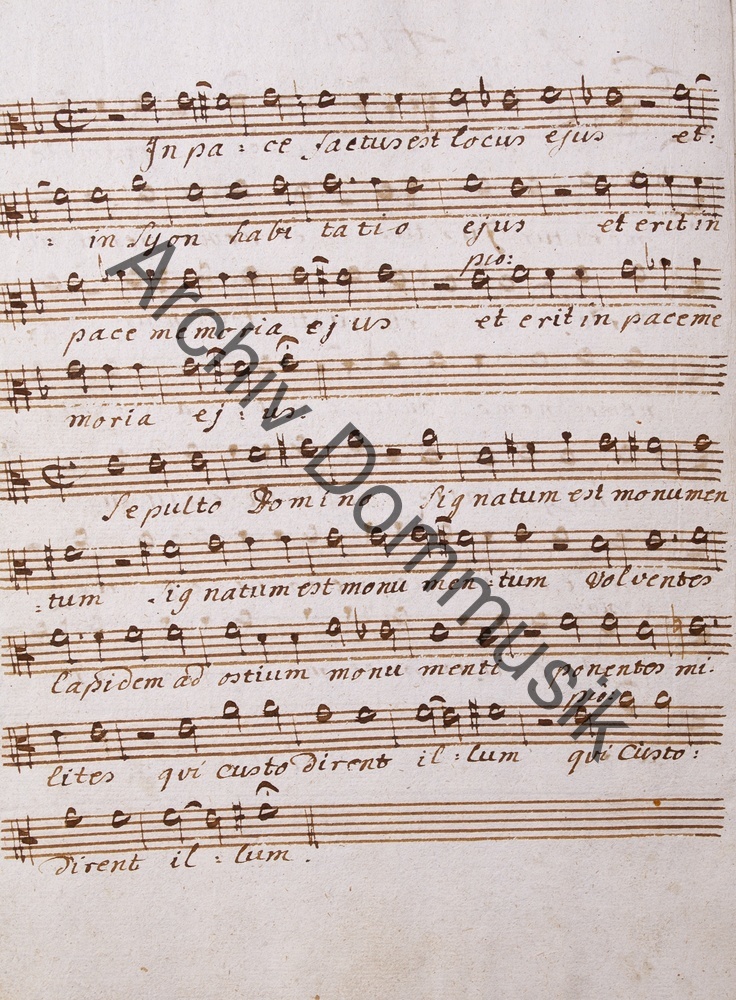 In pa : ce factus est locus ejus et :
: in Syon habi tatio ejus et erit in
pio:
pace memoria ejus et erit in pace me
moria ej : us.
Sepulto Domino Signatum est monumen
: tum Signatum est monu men : tum Volventes
lapidem ad ostium monu menti ponentes mi :
pio:
lites qui custo dirent il : lum qui Custo :
dirent il : lum .
Archiv Dommusik